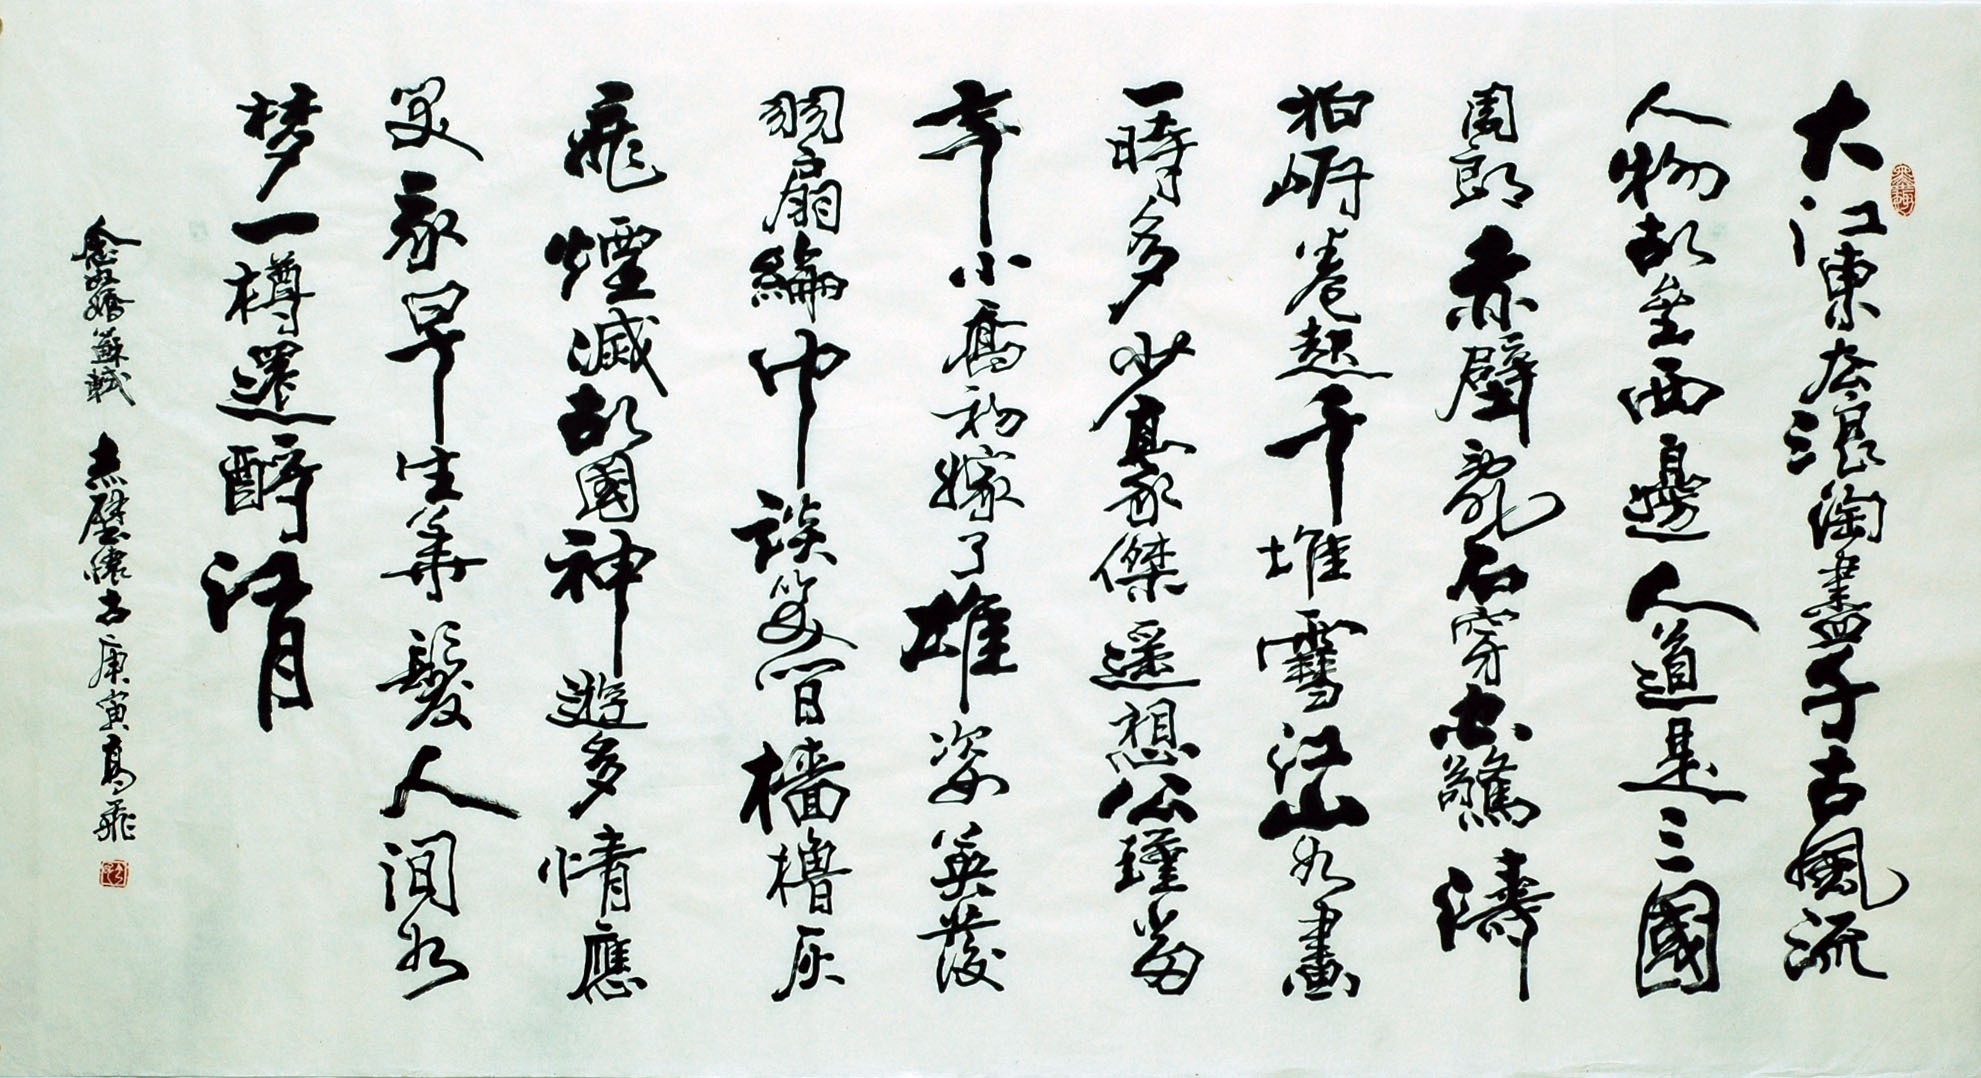 大江東去浪淘盡千古風流
人物故壘西邊人道是三國
周郎赤壁亂石穿空驚濤
拍岸卷起千堆雪江山如畫
一時多少豪傑遥想公瑾當
年小喬初嫁了雄姿英發
羽扇綸巾談笑間檣櫓灰
飛煙滅故國神遊多情應
笑我早生華髮人間如
梦一樽還酹江月
念奴嬌蘇軾 赤壁懷古庚寅高飛